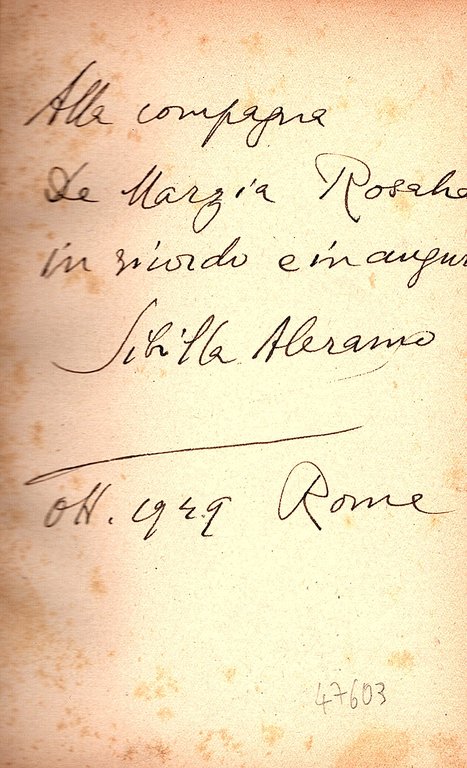 Alla compagna
De Marzia
in ricordo e in augur
Sibilla Aleramo
Ott. 1949 Rome
47603